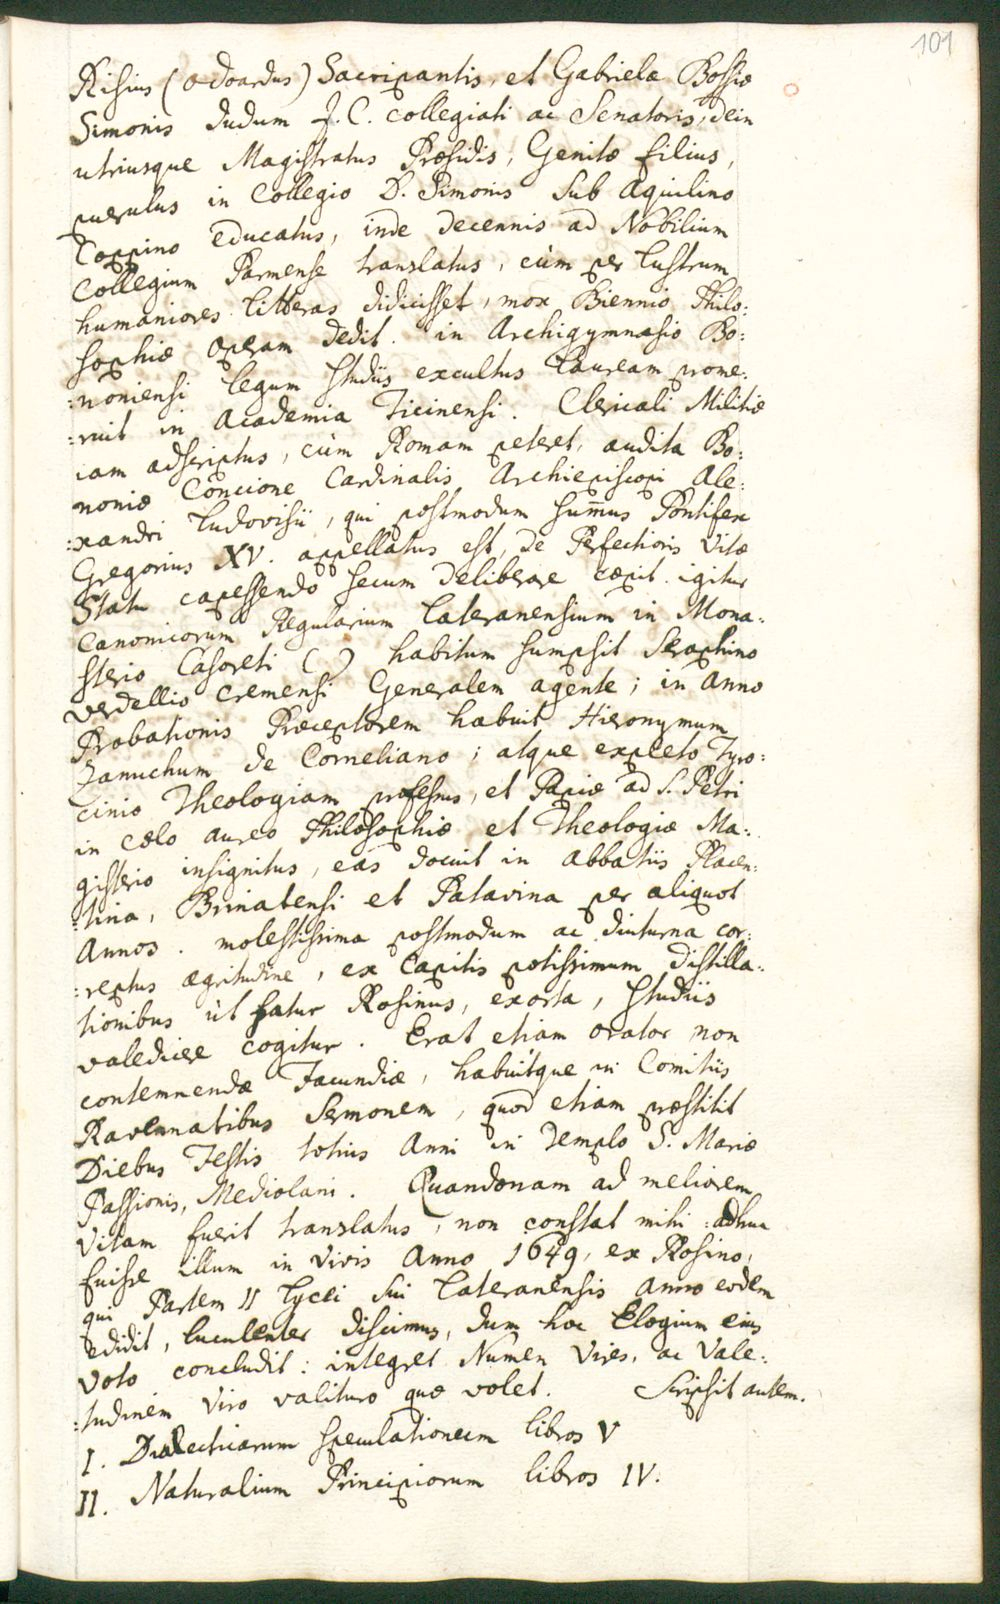 101
Risius (Odoardus) Sacripantis, et Gabrielæ Bossiæ
Simonis dudum J. C. collegiati ac Senatoris, dein
utriusque Magistratus Præsidis, Genitæ filius,
puerulus in Collegio D. Simonis sub Aquilino
Coppino educatus, inde decennis ad Nobilium
Collegium Parmense translatus, cùm per lustrum
humaniores litteras didicisset, mox Biennio Philo:
sophiæ operam dedit. in Archigymnasio Bo:
:noniensi legum studiis excultus Lauream prome:
:ruit in Academia Ticinensi. Clericali Militiæ
iam adscriptus, cùm Romam peteret, audita Bo:
noniæ Concione Cardinalis Archiepiscopi Ale:
:xandri Ludovisii, qui postmodum sum̄us Pontifex
Gregorius XV. appellatus est, de Perfectioris Vitæ
Statu capessendo secum deliberare cœpit. igitur
Canonicorum Regularium Lateranensium in Mona:
sterio Casoreti ( ) habitum sumpsit Seraphino
Verdellio Cremensi Generalem agente; in anno
Probationis Præceptorem habuit Hieronymum
Zanuchum de Corneliano; atque expleto Tyro:
cinio Theologiam professus, et Papiæ ad S. Petri
in cœlo aureo Philosophiæ et Theologiæ Ma:
gisterio insignitus, eas docuit in abbatiis Placen:
:tina, Brinatensi et Patavina per aliquot
Annos. molestissima postmodum ac diuturna cor:
:reptus ægritudine, ex Capitis potissimum distilla:
tionibus ut fatur Rosinus, exorta, studiis
valedicere cogitur. Erat etiam orator non
contemnendæ Facundiæ, habuitque in Comitiis
Ravennatibus Sermonem, quod etiam præstitit
Diebus Festis totius Anni in Templo S. Mariæ
Passionis, Mediolani. Quandonam ad meliorem
Vitam fuerit translatus, non constat mihi: adhuc
fuisse illum in Vivis Anno 1649, ex Rosino,
qui Partem II Lycei sui Lateranensis anno eodem
edidit, luculenter discimus, dum hoc Elogium eius
voto concludit: integret Numen Vires, ac Vale:
:tudinem Viro valituro quæ volet. Scripsit autem.
I. Dialecticarum speculationum libros V
II. Naturalium Principiorum libros IV.